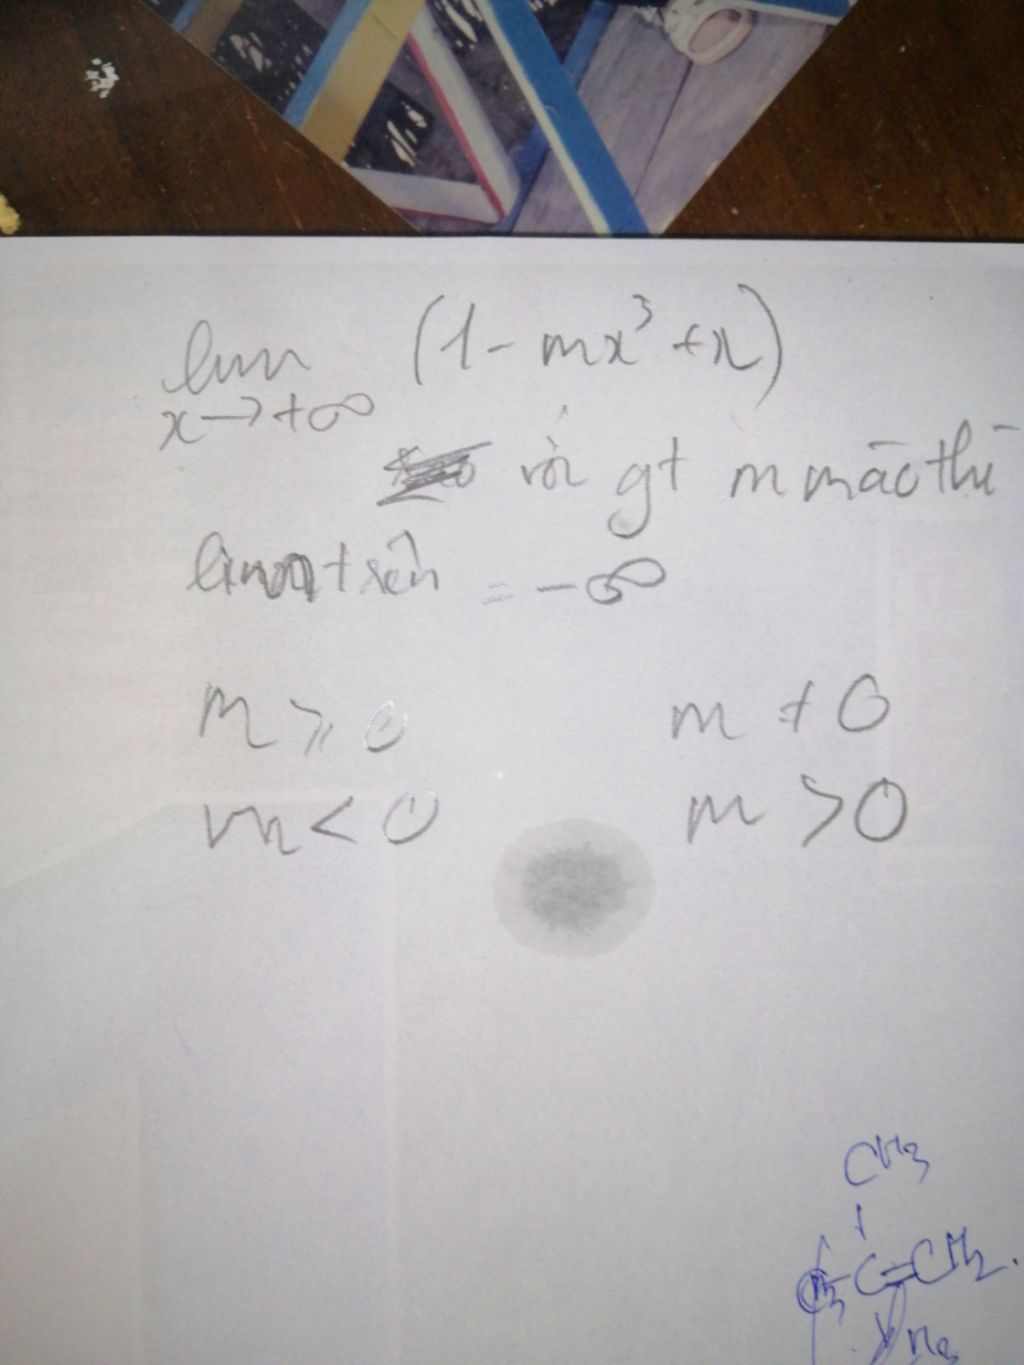 lim (1 - mx³ + x)
x → +∞
với gt m nào thì
lim trên = -∞
m ⩾ 0 m ≠ 0
m < 0 m > 0
CH3
C=CH2